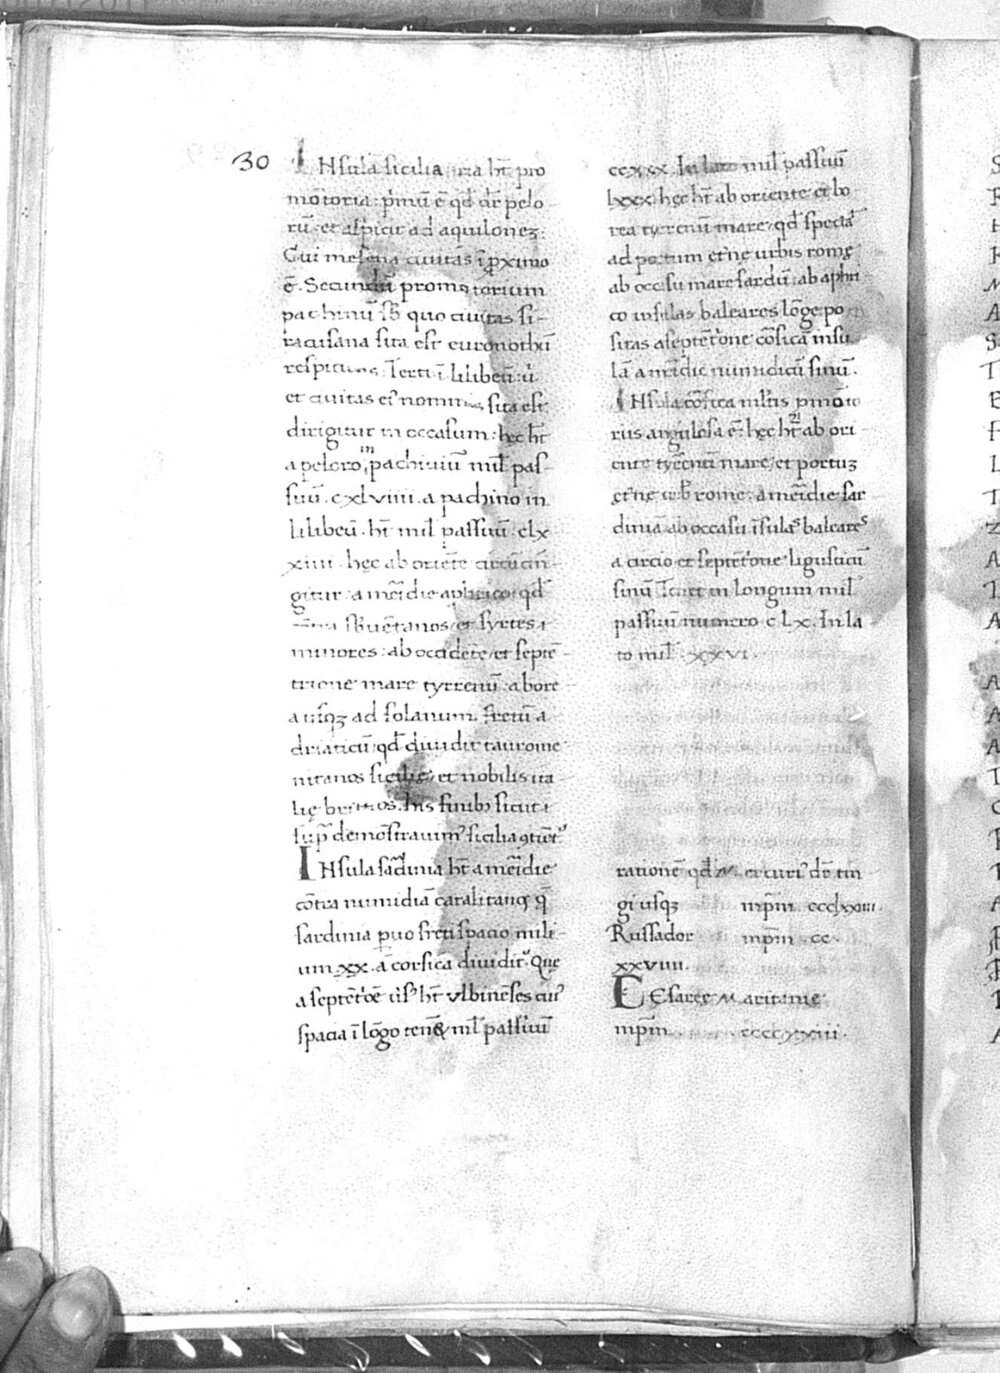 30
INsula sicilia tria ht̄ pro
mōtoria: p̄mū ē qd̄ dr̄ pelo
rū: et aspicit ad aquilonez:
Cui mesena ciuitas ī ꝓximo
ē. Secundū promotorium
pachinū sb̄ quo ciuitas si-
racusana sita est euronothū
respiciens. Terti ī lilibeū: ū
et ciuitas ei᾽ nominis sita est:
dirigitur in occasum: hec ht̄
a peloro in pachinū mil̄ pas-
suū. cxlviiii. a pachino in
lilibeū. ht̄ mil̄ passuū. clx
xiiii. hęc ab oriēte circūcin-
gitur: a mēridie aphrico: qd̄
sb̄uētanos: et syrtes
minores: ab occidēte: et septē-
trione mare tyrrenū: a bore-
a usqꝫ ad solanum. fretū a
driaticū: qd̄ diuidit taurome-
nitanos sicilię: et nobilis ita-
lię. his finibꝫ sicut
sup̄ demōstrauim᾽ sicilia ꝯtinet᾽
INsula sardinia ht̄ a mēridie
cōtra numidiā caralitanos q̄
sardinia ꝑuo freti spacio mili-
um xx. a corsica diuidit᾽. Que
a septētr̄oē ūs᾽ ht̄ ulbinēses cui᾽
spacia ī lōgo tenēt mil̄ passuū
ccxxx. In lato mil̄ passuū
lxxx. hęc ht̄ ab oriente et bo-
rea tyrrenū mare: qd̄ spectat
ad portum etne urbis romę
ab occasu mare sardū: ab aphri
co insulas baleares lōge po-
sitas a septētr̄one cōsicā insu
lā a mēridie numidicū sinū.
INsula cōsica ml̄tis pmōto
riis angulosa ē: hęc ht̄ ab ori
ente tyrenū mare: et portuꝫ
etne urb̄ rome: a mēridie sar
diniā ab occasu īsulas baleares
a circio et septētr̄one ligusticū
sinū Tenet in longum mil̄
passuū numero clx. In la
to mil̄. xxvi.
rationē qd̄ M. ercuri᾽ dē tin
gi usqꝫ mpm̄ ccclxxiiii.
Russador mpm̄ cc.
xxviiii.
Cesaree Maritanie
mpm̄ ccccxxiii.